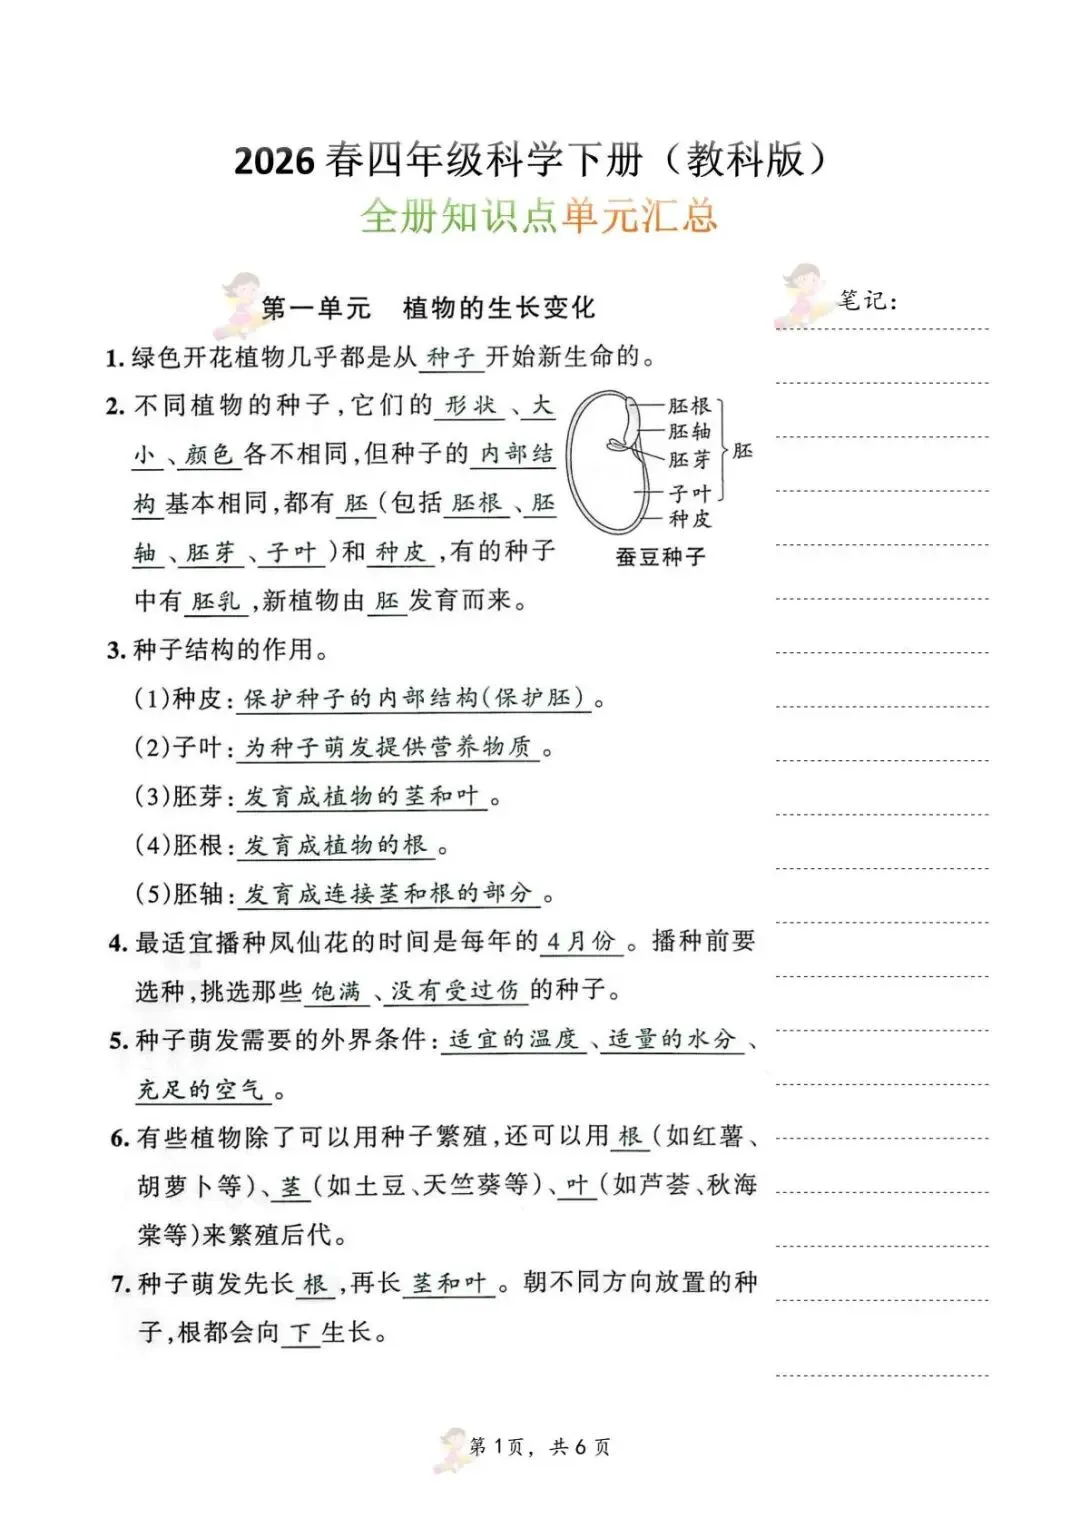 2026 春四年级科学下册（教科版）
全册知识点单元汇总
第一单元 植物的生长变化
1. 绿色开花植物几乎都是从 种子 开始新生命的。
2. 不同植物的种子,它们的 形状 、大
小 、颜色 各不相同,但种子的 内部结
构 基本相同,都有 胚 (包括 胚根 、胚
轴 、胚芽 、子叶 )和 种皮 ,有的种子
中有 胚乳 ,新植物由 胚 发育而来。
胚根
胚轴
胚芽
子叶
胚
种皮
蚕豆种子
3. 种子结构的作用。
(1)种皮: 保护种子的内部结构(保护胚) 。
(2)子叶: 为种子萌发提供营养物质 。
(3)胚芽: 发育成植物的茎和叶 。
(4)胚根: 发育成植物的根 。
(5)胚轴: 发育成连接茎和根的部分 。
4. 最适宜播种凤仙花的时间是每年的 4 月份 。播种前要
选种,挑选那些 饱满 、没有受过伤 的种子。
5. 种子萌发需要的外界条件: 适宜的温度 、适量的水分 、
充足的空气 。
6. 有些植物除了可以用种子繁殖,还可以用 根 (如红薯、
胡萝卜等)、茎 (如土豆、天竺葵等)、叶 (如芦荟、秋海
棠等)来繁殖后代。
7. 种子萌发先长 根 ,再长 茎和叶 。朝不同方向放置的种
子,根都会向 下 生长。
笔记:
第 1 页，共 6 页